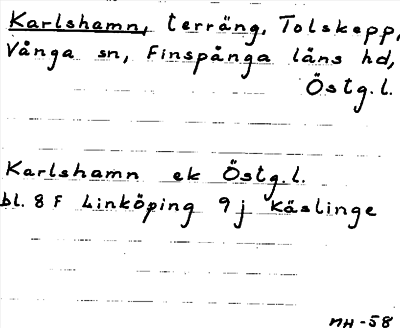 Karlshamn, terräng, Tolskepp,
Vånga sn, Finspånga läns hd,
Östg.l.
Karlshamn ek Östg.l.
bl. 8 F Linköping 9 j Käslinge
MH-58